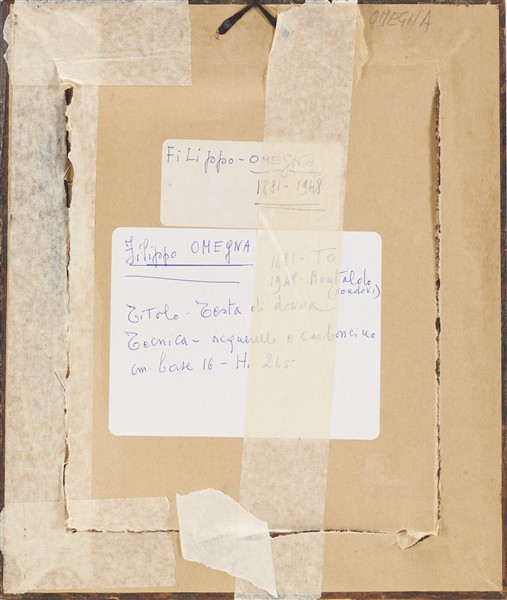 OMEGNA
Filippo - OMEGNA
1881 - 1948
Filippo OMEGNA
1881 - TO
1948 - Montaldo
(Mondovì)
Titolo - Testa di donna
Tecnica - acquerello e carboncino
cm. base 16 - H. 21.5